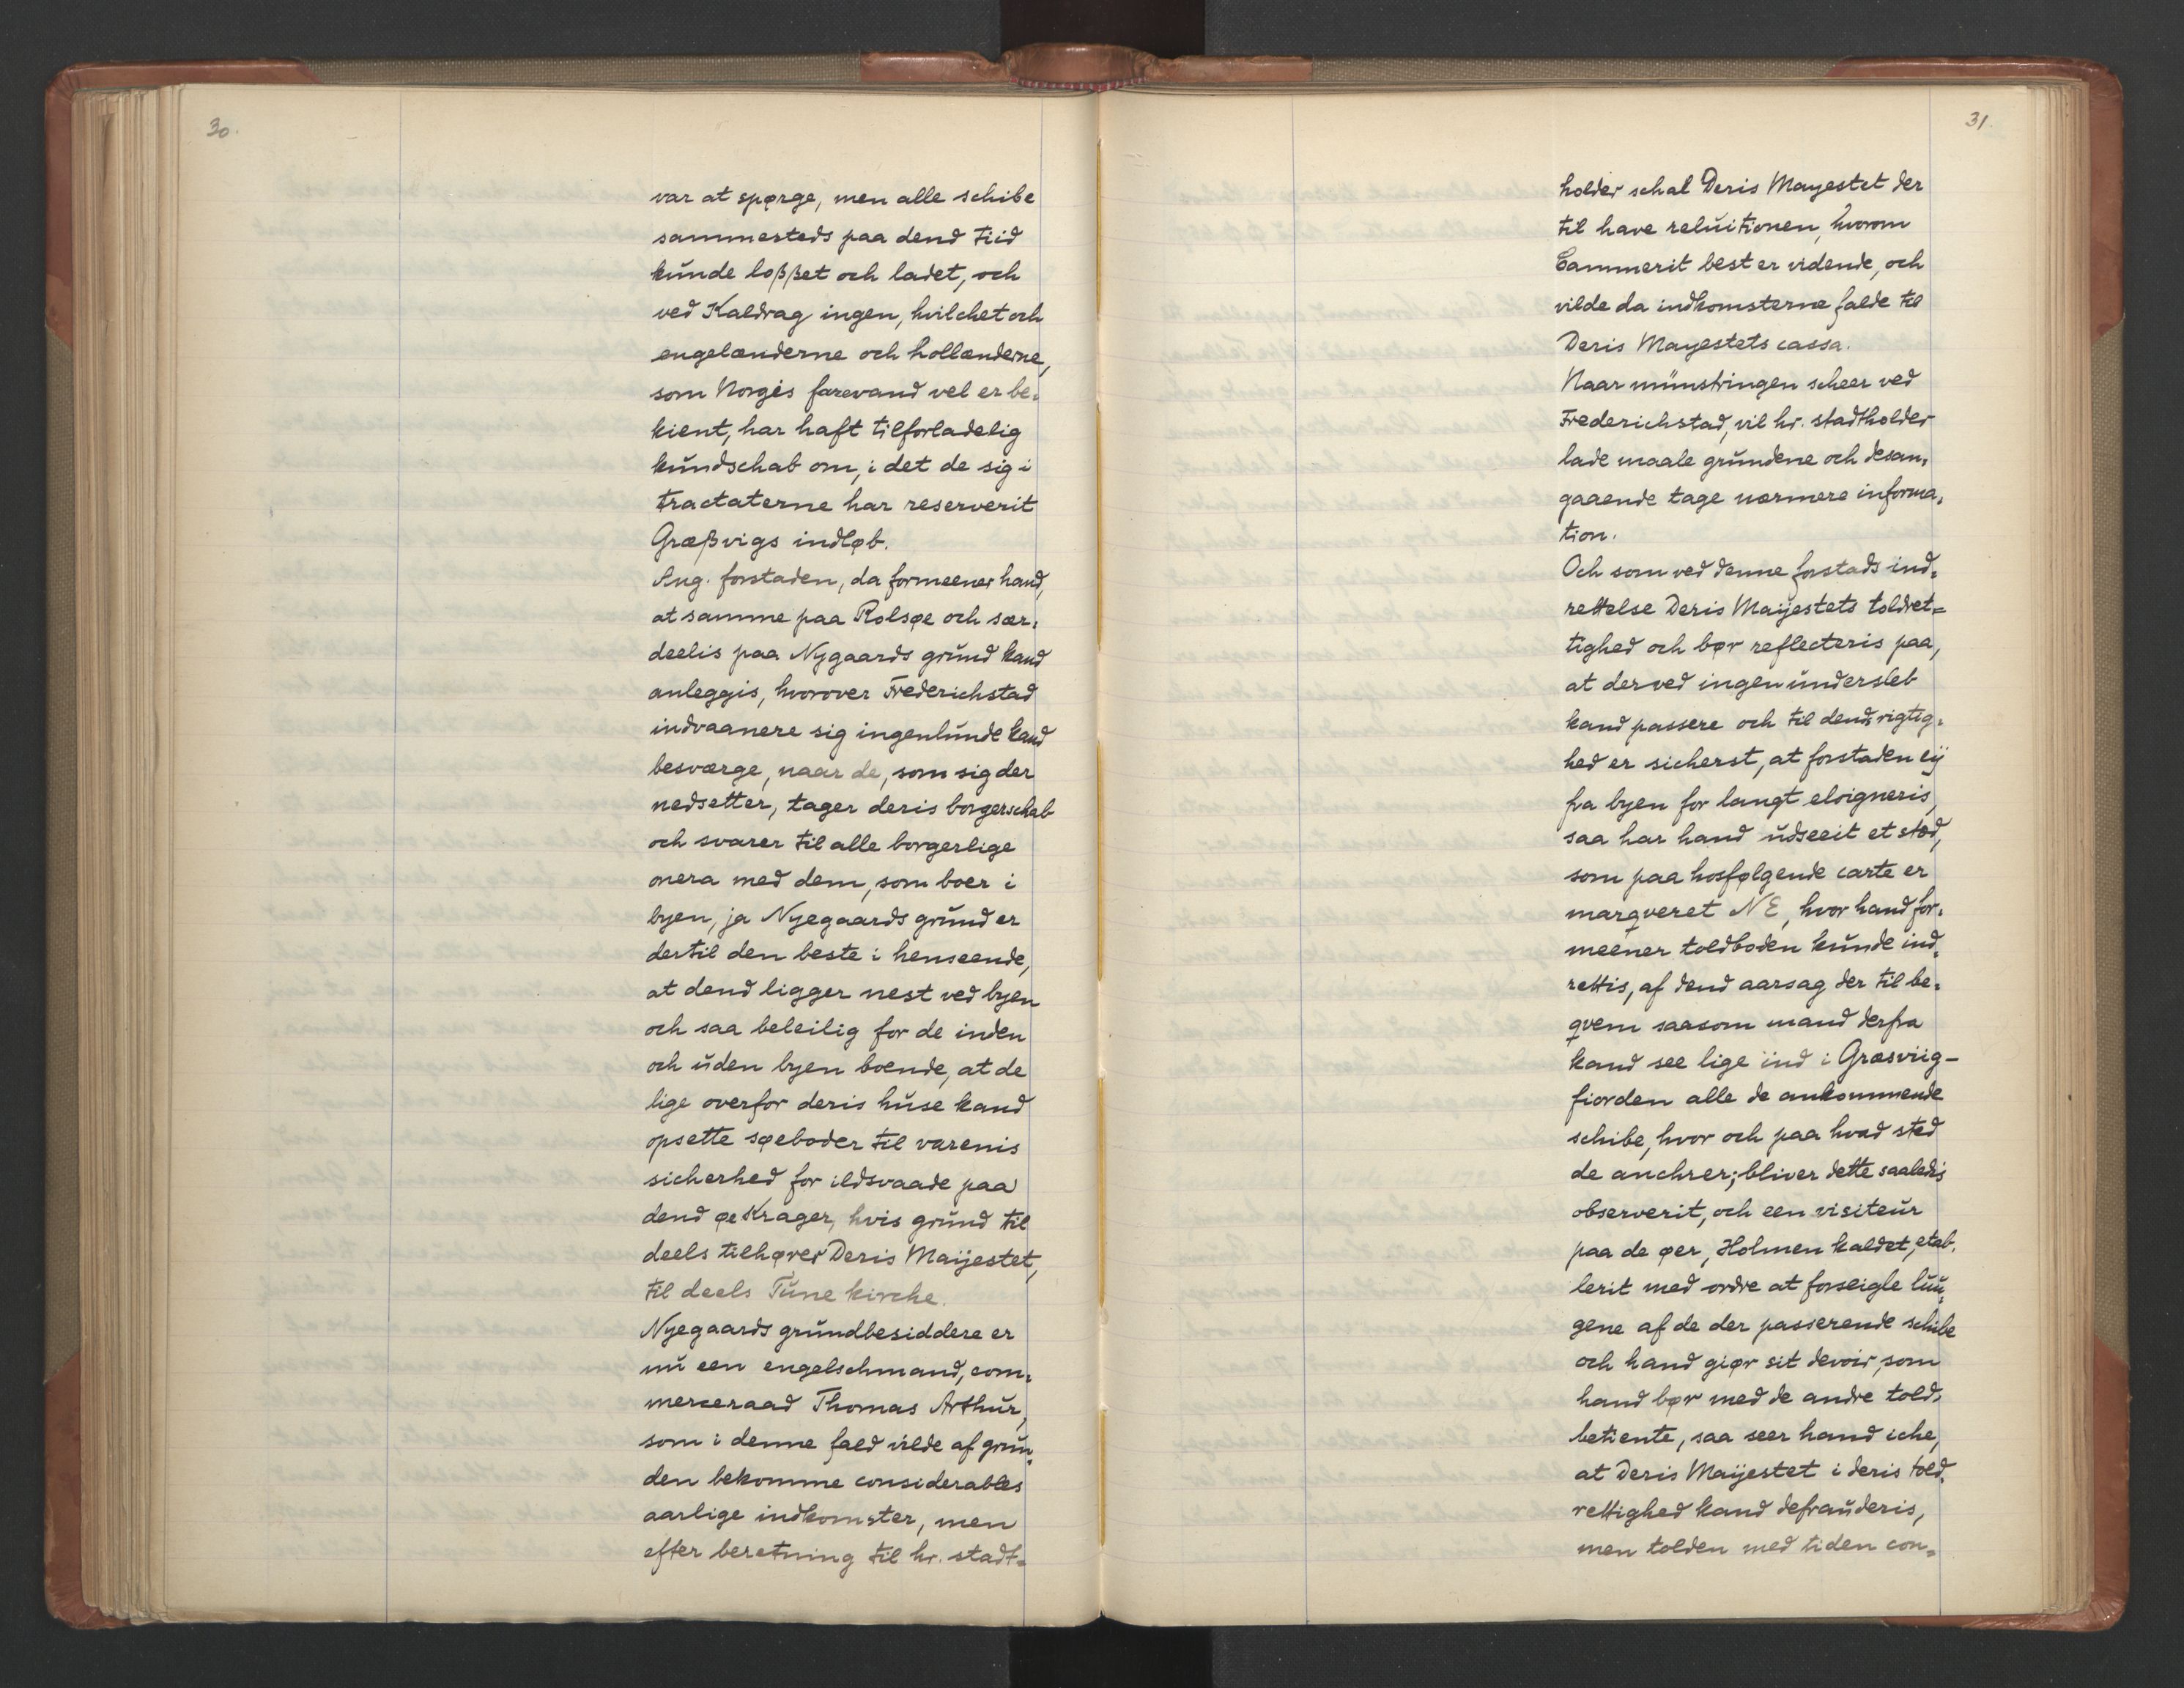 30.
var at spørge, men alle schibe
sammesteds paa dend tiid
kunde loßßet och ladet, och
ved Kaldrag ingen, hvilchet och
engelænderne och hollænderne,
som Norgis farevand vel er be-
kient, har haft tilforladelig
kundschab om, i det de sig i
tractaterne har reserverit
Græßvigs indløb.
Ang. forstaden, da formeener hand,
at samme paa Rolsøe och sær-
deelis paa Nygaards grund kand
anleggis, hvorover Frederichstad
indvaanere sig ingenlunde kand
besværge, naar de, som sig der
nedsetter, tager deris borgerschab
och svarer til alle borgerlige
onera med dem, som boer i
byen, ja Nyegaards grund er
dertil den beste i henseende,
at dend ligger nest ved byen
och saa beleilig for de inden
och uden byen boende, at de
lige overfor deris huse kand
opsette søeboder til varenis
sicherhed for ildsvaade paa
dend øe Krager, hvis grund til
deels tilhører Deris Maijestet,
til deels Tune kirche.
Nyegaards grundbesiddere er
nu een engelschmand, com-
merceraad Thomas Arthur,
som i denne fald vilde af grun-
den bekomme considerables
aarlige indkomster, men
efter beretning til hr. stadt-
31.
holder schal Deris Mayestet der
til have reluitionen, hvorom
Cammerit best er vidende, och
vilde da indkomsterne falde til
Deris Mayestets cassa.
Naar münstringen scheer ved
Frederichstad, vil hr. stadtholder
lade maale grundene och desan-
gaaende tage nærmere informa-
tion.
Och som ved denne forstads ind-
rettelse Deris Maijestets toldret-
tighed och bør reflecteris paa,
at derved ingen undersleb
kand passere och til dends rigtig-
hed er sicherst, at forstaden eij
fra byen for langt eloigneris,
saa har hand udseeit et stæd,
som paa hosfølgende carte er
marqveret NE, hvor hand for-
meener toldboden kunde ind-
rettis, af dend aarsag der til be-
qvem saasom mand derfra
kand see lige ind i Græsviig-
fiorden alle de ankommende
schibe, hvor och paa hvad sted
de anchrer; bliver dette saaledis
observerit, och een visiteur
paa de øer, Holmen kaldet, etab-
lerit med ordre at forseigle luu-
gene af de der passerende schibe
och hand giør sit devoir, som
hand bør med de andre told-
betiente, saa seer hand iche,
at Deris Maijestet i deris told-
rettighed kand defrauderis,
men tolden med tiden con-